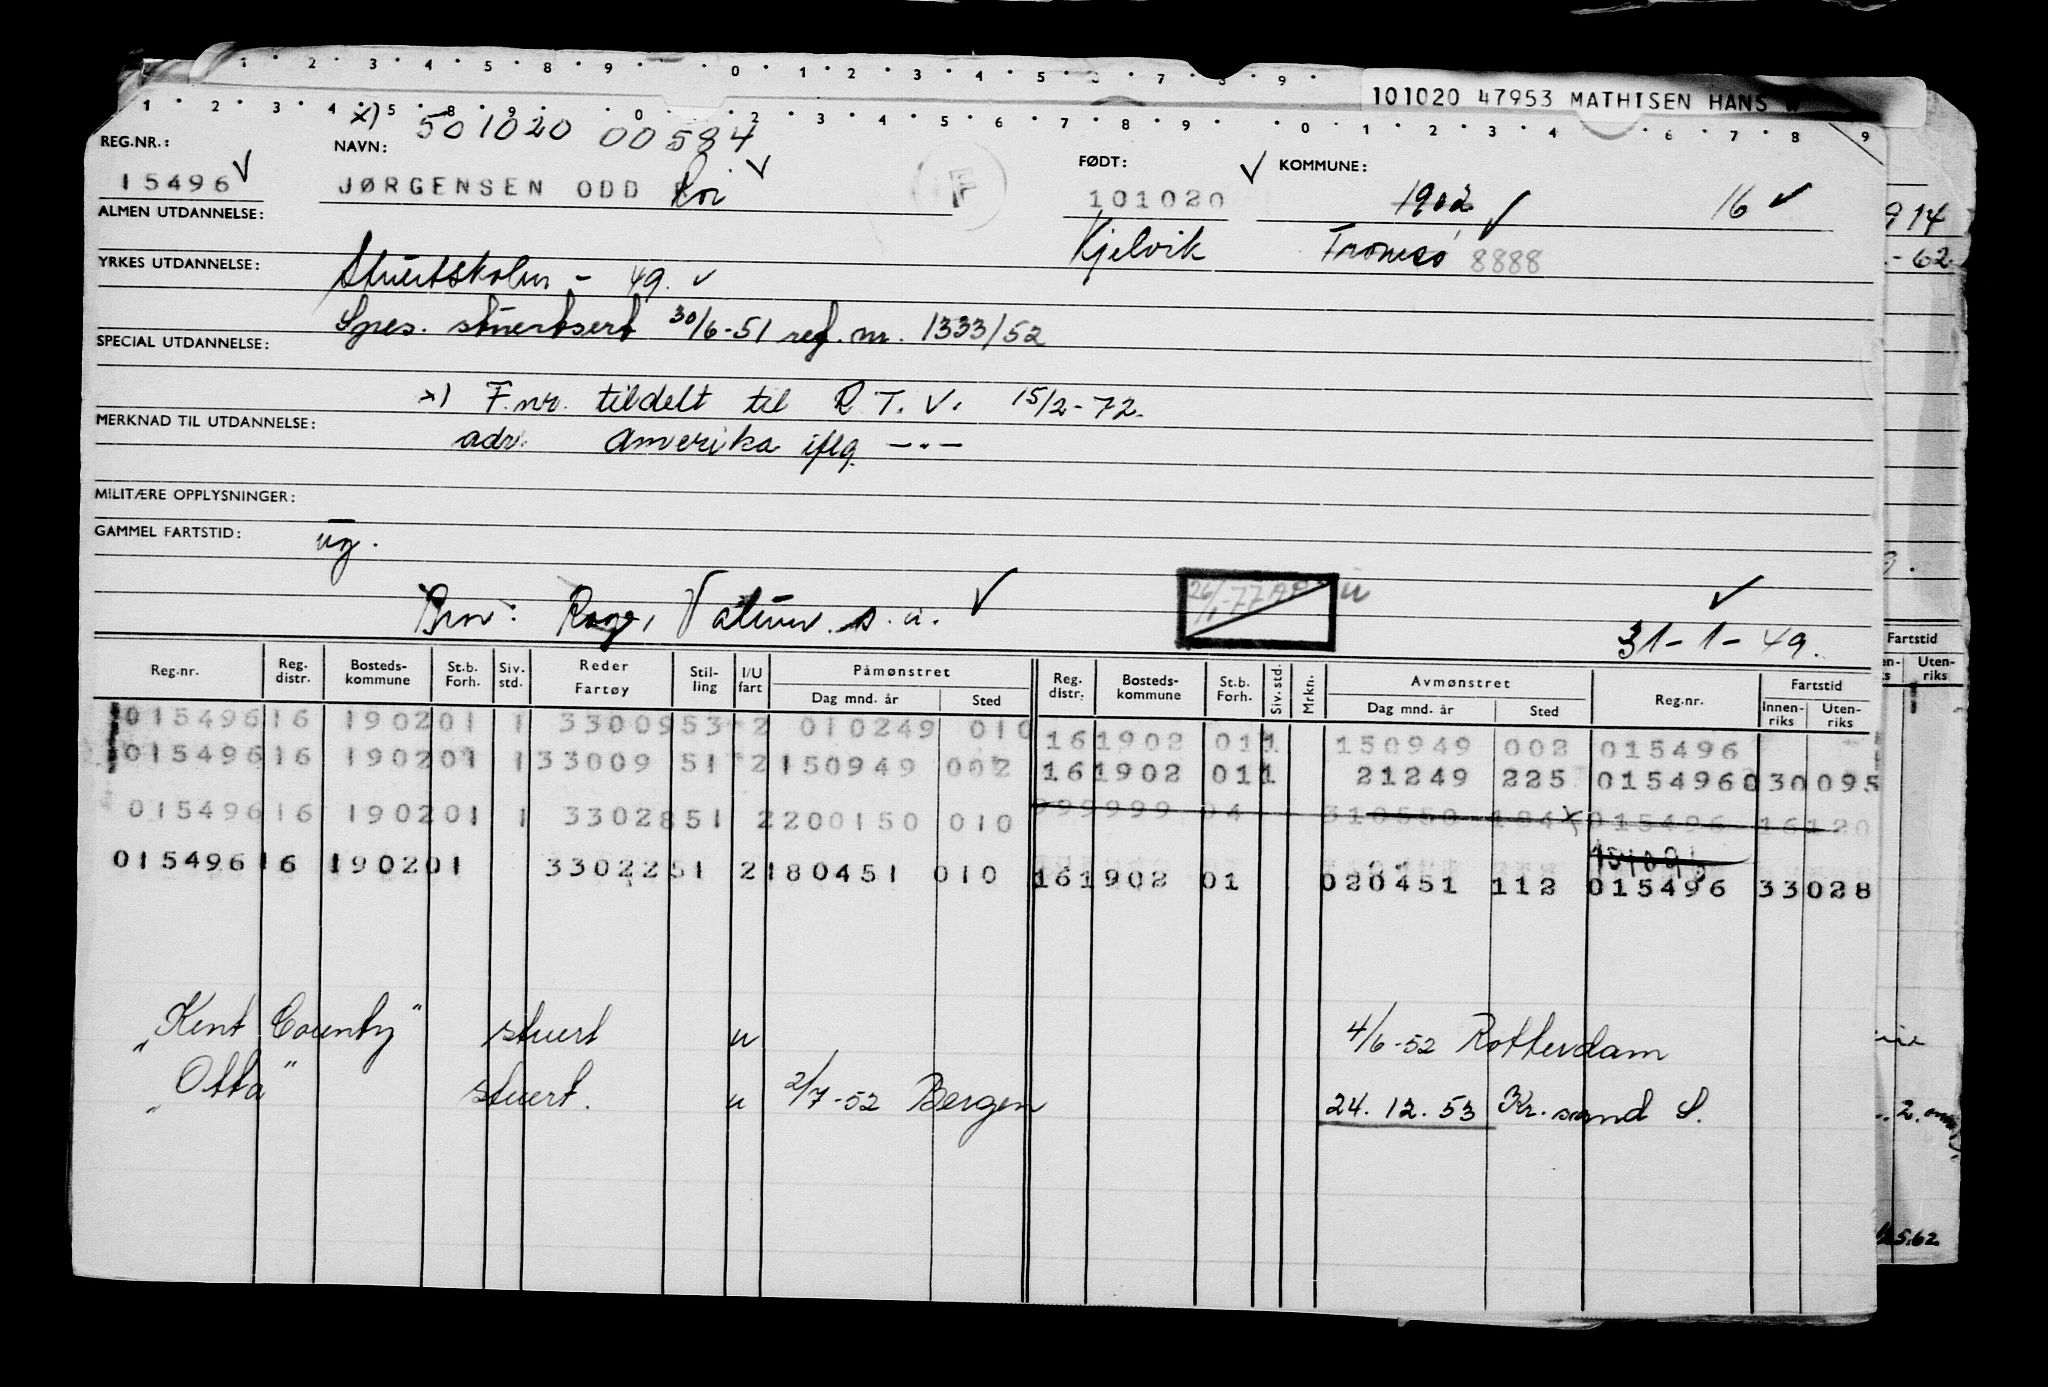 1 2 3 4 5 8 9 0 1 2 3 4 5 6 7 8 9
101020 47953 MATHISEN HANS
1 2 3 4 5 8 9 0 2 3 4 5 6 7 8 9 0 1 2 3 4 6 7 8 9
x) 501020 00584
REG.NR.: NAVN: FØDT: KOMMUNE:
15496 JØRGENSEN ODD Roi F 101020 1902 16
ALMEN UTDANNELSE: Kjelvik Tromsø 8888
YRKES UTDANNELSE: Stuertskolen - 49.
Spes. stuertsert 30/6-51 reg. nr. 1333/52
SPECIAL UTDANNELSE:
x) F.nr. tildelt til R.T.V. 15/2-72.
MERKNAD TIL UTDANNELSE: adr. Amerika iflg. —"—
MILITÆRE OPPLYSNINGER:
GAMMEL FARTSTID: ug.
26/1-77
31-1-49.
Reg.nr. Reg. distr. Bosteds-kommune St.b. Forh. Siv. std. Reder Fartøy Stil-ling I/U fart Påmønstret Dag mnd. år Sted Reg. distr. Bosteds-kommune St.b. Forh. Siv. std. Mrkn. Avmønstret Dag mnd. år Sted Reg.nr. Fartstid Innen-riks Uten-riks
015496 16 1902 01 1 33009 53 2 010249 010 16 1902 01 1 150949 002 015496
015496 16 1902 01 1 33009 51 2 150949 002 16 1902 01 1 21249 225 015496 030095
015496 16 1902 01 1 33028 51 2 200150 010 999999 04 310550 184 015496 16120
015496 16 1902 01 33022 51 2 180451 010 16 1902 01 020451 112 015496 33028
"Kent County" stuert u 4/6-52 Rotterdam
"Otta" stuert. u 2/7-52 Bergen 24.12.53 Kr.sand S.
Fartstid
Uten-riks
914
-62